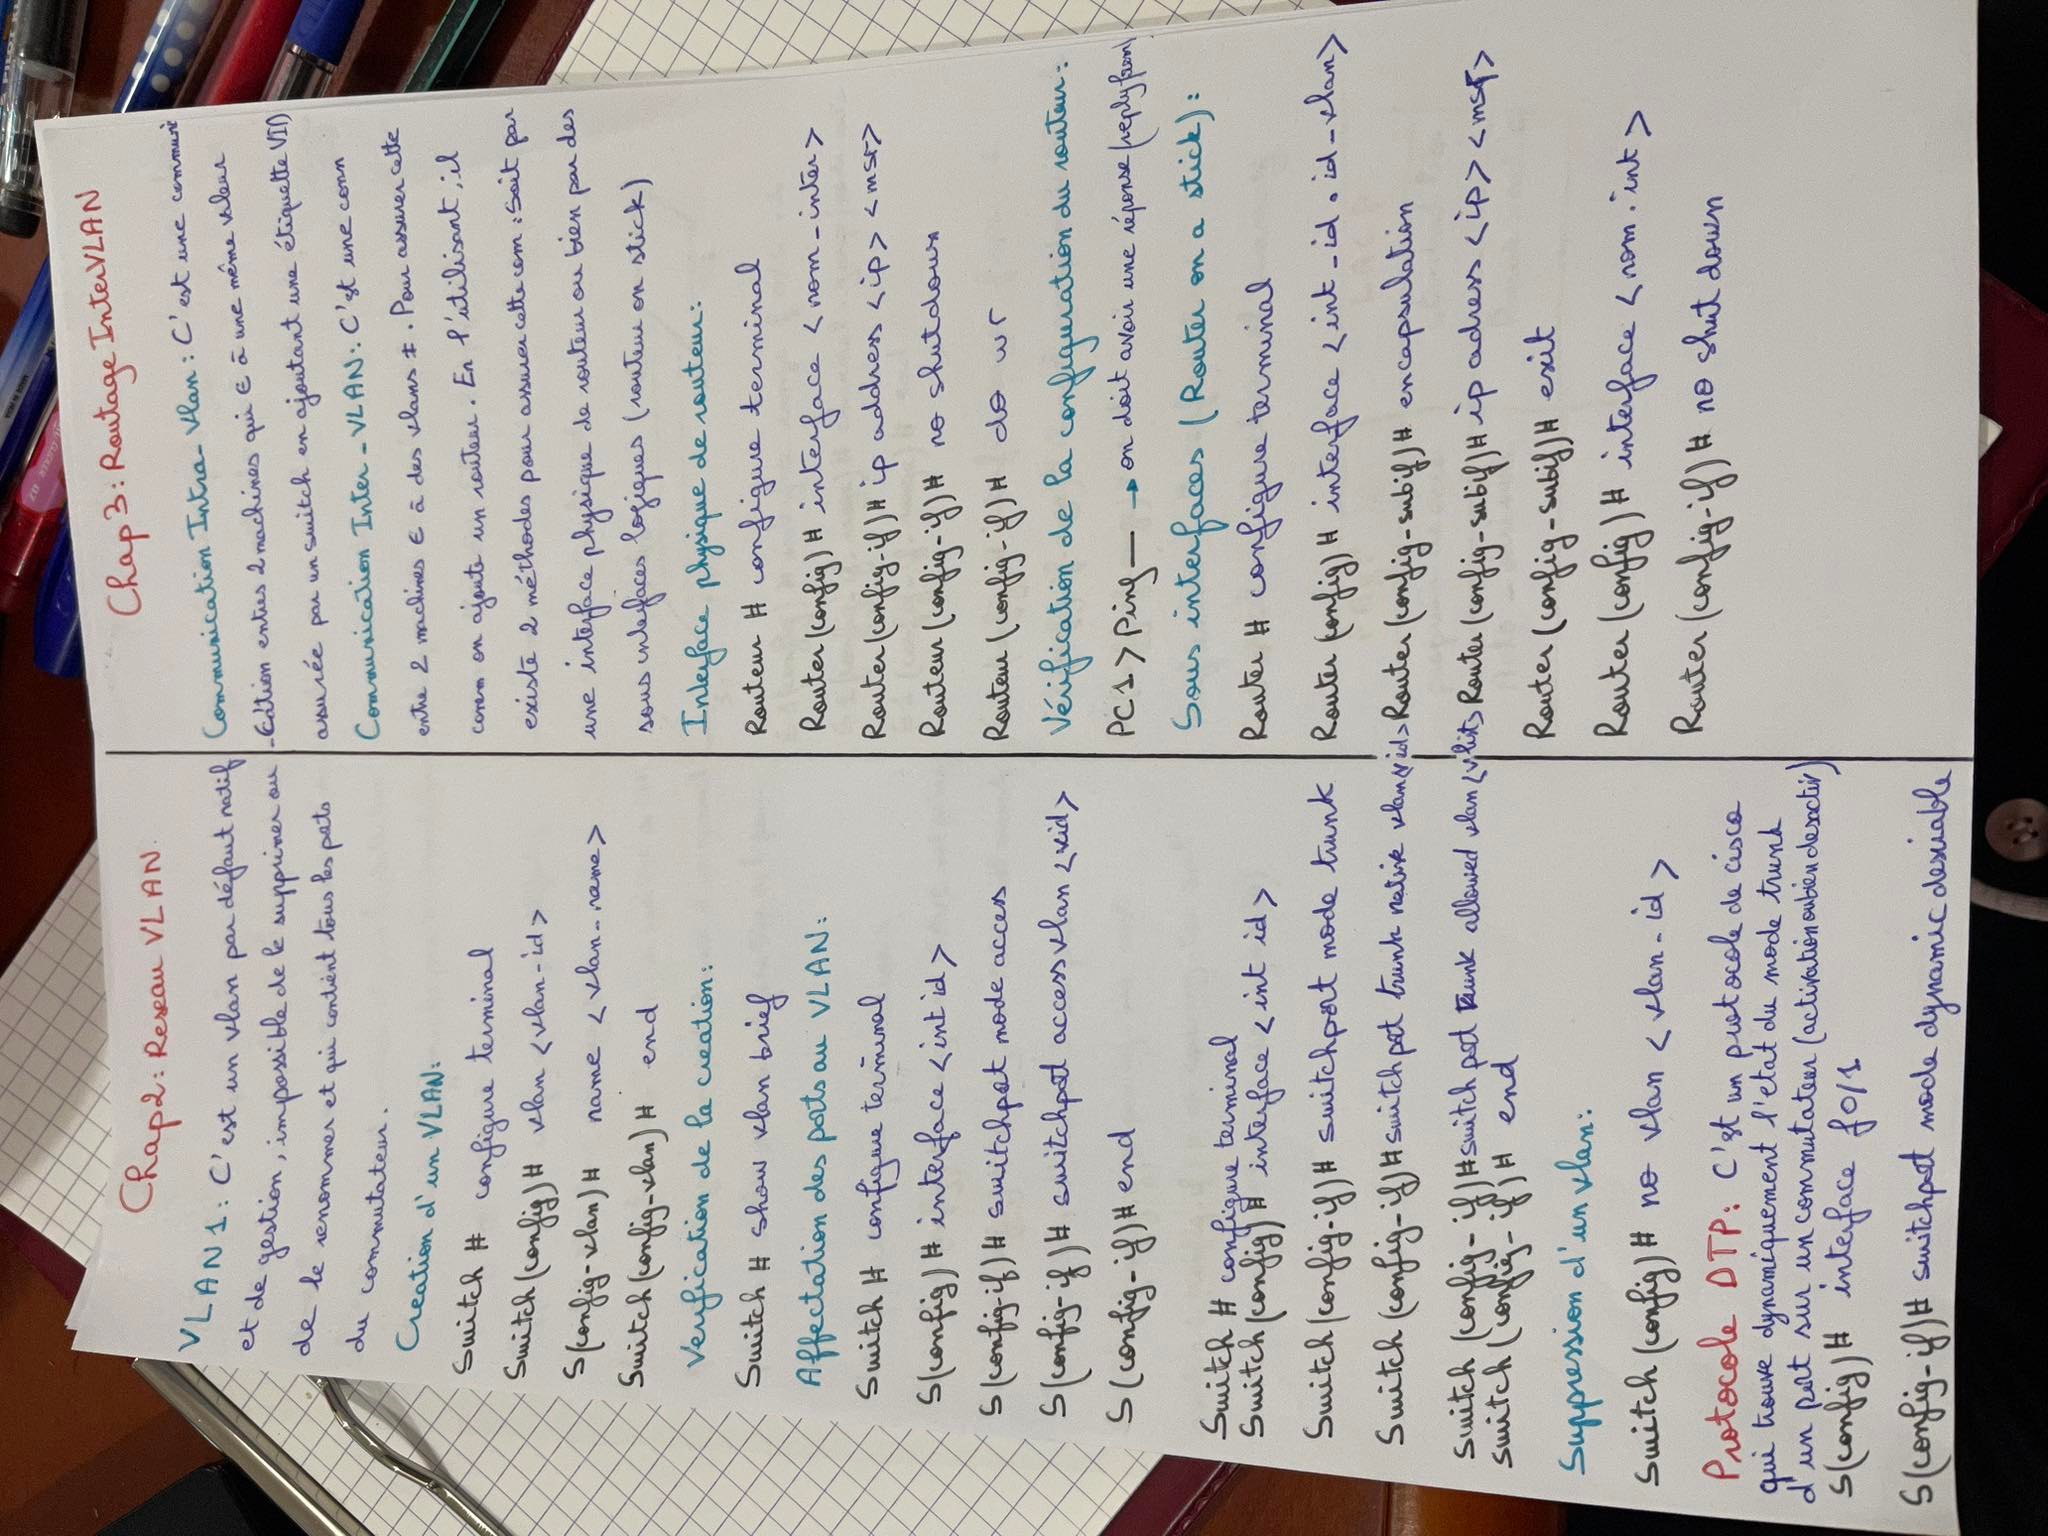 Chap2: Reseau VLAN
VLAN1: C'est un vlan par défaut natif
et de gestion, impossible de le supprimer ou
de le renommer et qui contient tous les ports
du commutateur.
Creation d'un VLAN:
Switch # configure terminal
Switch(config)# vlan <vlan-id>
S(config-vlan)# name <vlan-name>
Switch(config-vlan)# end
Verification de la creation:
Switch # show vlan brief
Affectation des ports au VLAN:
Switch # configure terminal
S(config)# interface <int id>
S(config-if)# switchport mode access
S(config-if)# switchport access vlan <vid>
S(config-if)# end
Switch # configure terminal
Switch(config)# interface <int id>
Switch(config-if)# switchport mode trunk
Switch(config-if)# switchport trunk native vlan <vid>
Switch (config-if)# switchport trunk allowed vlan <vlist>
Switch(config-if)# end
Suppression d'un vlan:
Switch(config)# no vlan <vlan-id>
Protocole DTP: C'est un protocole de cisco
qui trouve dynamiquement l'etat du mode trunk
d'un port sur un commutateur (activation ou bien desactiv)
S(config)# interface f0/1
S(config-if)# switchport mode dynamic desirable
Chap3: Routage InterVLAN
Communication Intra-Vlan: C'est une communi
-cation entres 2 machines qui ∈ à une même valeur
assurée par un switch en ajoutant une étiquette VID
Communication Inter-VLAN: C'est une conn
entre 2 machines ∈ à des vlans ≠. Pour assurer cette
conn on ajoute un routeur. En l'utilisant, il
existe 2 méthodes pour assurer cette com: Soit par
une interface physique de routeur ou bien par des
sous interfaces logiques (routeur on stick)
Interface physique de routeur:
Routeur # configure terminal
Router(config)# interface <nom-inter>
Router(config-if)# ip address <ip> <msr>
Routeur(config-if)# no shutdown
Routeur(config-if)# do wr
Vérification de la configuration du routeur:
PC1>Ping — → on doit avoir une réponse (reply from)
Sous interfaces (Router on a stick):
Router # configure terminal
Router(config)# interface <int-id.id-vlan>
Router(config-subif)# encapsulation
Router(config-subif)# ip adress <ip> <msr>
Router(config-subif)# exit
Router(config)# interface <nom.int>
Router(config-if)# no shut down